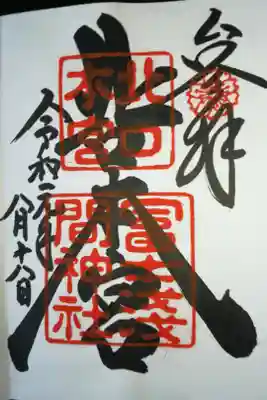 参拝
北口本宮
北口
本宮
冨士浅
間神社
令和元年
八月十八日